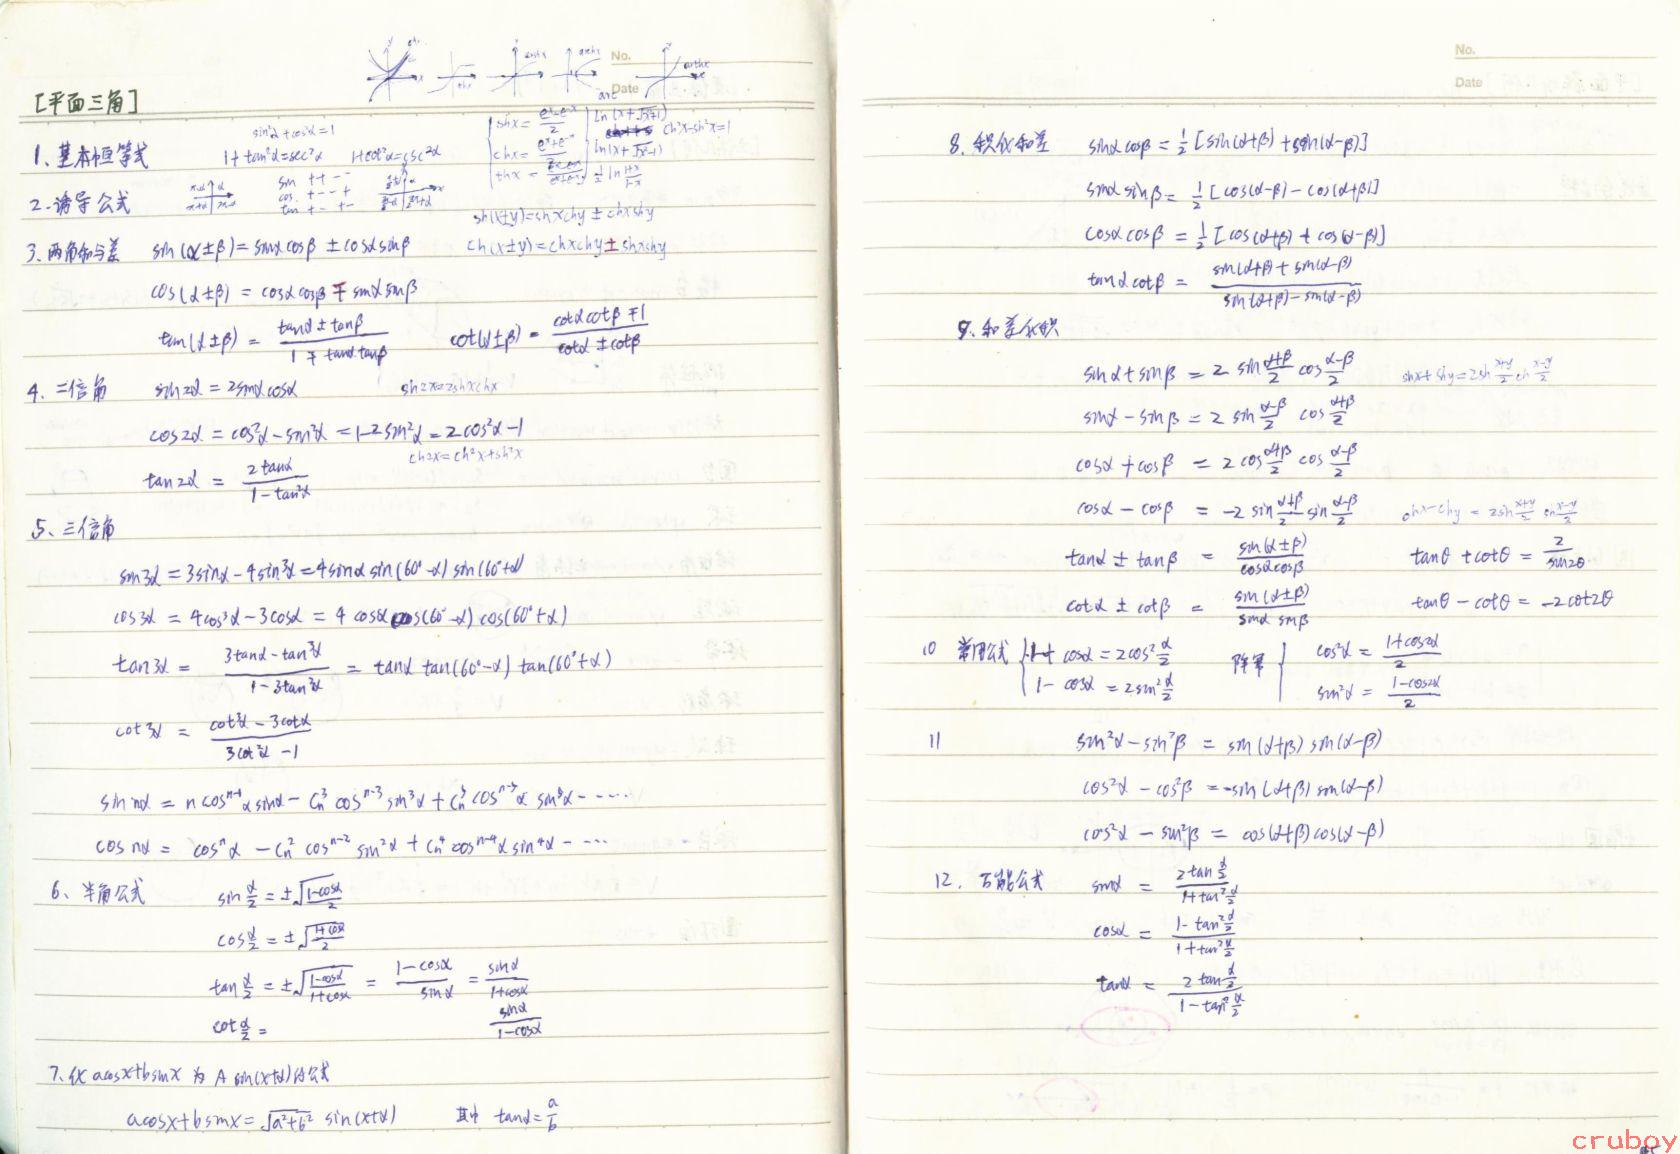 No.
Date
[平面三角]
1、基本恒等式 sin²α+cos²α=1
1+tan²α=sec²α 1+cot²α=csc²α
shx = (eˣ-e⁻ˣ)/2
chx = (eˣ+e⁻ˣ)/2
thx =
arc
ln(x+√(x²+1))
ln(x+√(x²-1))
½ ln (1+x)/(1-x)
ch²x-sh²x=1
2.诱导公式
sin + + - -
cos + - - +
tan + - + -
sh(x±y)=shxchy ± chxshy
3.两角和与差 sin(α±β)=sinαcosβ ± cosαsinβ ch(x±y)=chxchy±shxshy
cos(α±β) = cosαcosβ ∓ sinαsinβ
tan(α±β) = (tanα±tanβ)/(1∓tanαtanβ) cot(α±β) = (cotαcotβ∓1)/(cotα±cotβ)
4.二倍角 sin2α = 2sinαcosα sh2x=2shxchx
cos2α = cos²α-sin²α = 1-2sin²α = 2cos²α-1
ch2x=ch²x+sh²x
tan2α = 2tanα/(1-tan²α)
5.三倍角
sin3α = 3sinα-4sin³α = 4sinα sin(60°-α) sin(60°+α)
cos3α = 4cos³α-3cosα = 4cosα cos(60°-α) cos(60°+α)
tan3α = (3tanα-tan³α)/(1-3tan²α) = tanα tan(60°-α) tan(60°+α)
cot3α = (cot³α-3cotα)/(3cot²α-1)
sin nα = n cosⁿ⁻¹α sinα - Cn³ cosⁿ⁻³ sin³α + Cn⁵ cosⁿ⁻⁵α sin⁵α - ·····
cos nα = cosⁿα - Cn² cosⁿ⁻² sin²α + Cn⁴ cosⁿ⁻⁴α sin⁴α - ····
6、半角公式 sin α/2 = ±√((1-cosα)/2)
cos α/2 = ±√((1+cosα)/2)
tan α/2 = ±√((1-cosα)/(1+cosα)) = (1-cosα)/sinα = sinα/(1+cosα)
cot α/2 = sinα/(1-cosα)
7.化 acosx+bsinx 为 A sin(x+α)的公式
acosx+bsinx = √(a²+b²) sin(x+α) 其中 tanα = a/b
No.
Date
8.积化和差 sinαcosβ = ½[sin(α+β)+sin(α-β)]
sinαsinβ = ½[cos(α-β)-cos(α+β)]
cosαcosβ = ½[cos(α+β)+cos(α-β)]
tanαcotβ = (sin(α+β)+sin(α-β))/(sin(α+β)-sin(α-β))
9.和差化积
sinα+sinβ = 2 sin (α+β)/2 cos (α-β)/2 shx+shy=2sh (x+y)/2 ch (x-y)/2
sinα-sinβ = 2 sin (α-β)/2 cos (α+β)/2
cosα+cosβ = 2 cos (α+β)/2 cos (α-β)/2
cosα-cosβ = -2 sin (α+β)/2 sin (α-β)/2 chx-chy = 2sh (x+y)/2 sh (x-y)/2
tanα±tanβ = sin(α±β)/(cosαcosβ) tanθ+cotθ = 2/sin2θ
cotα±cotβ = sin(α±β)/(sinα sinβ) tanθ-cotθ = -2cot2θ
10 常用公式 1+cosα = 2cos² α/2 降幂 cos²α = (1+cos2α)/2
1-cosα = 2sin² α/2 sin²α = (1-cos2α)/2
11 sin²α-sin²β = sin(α+β) sin(α-β)
cos²α-cos²β = -sin(α+β) sin(α-β)
cos²α-sin²β = cos(α+β)cos(α-β)
12.万能公式 sinα = 2tan α/2 / (1+tan² α/2)
cosα = (1-tan² α/2)/(1+tan² α/2)
tanα = 2tan α/2 / (1-tan² α/2)
cruboy